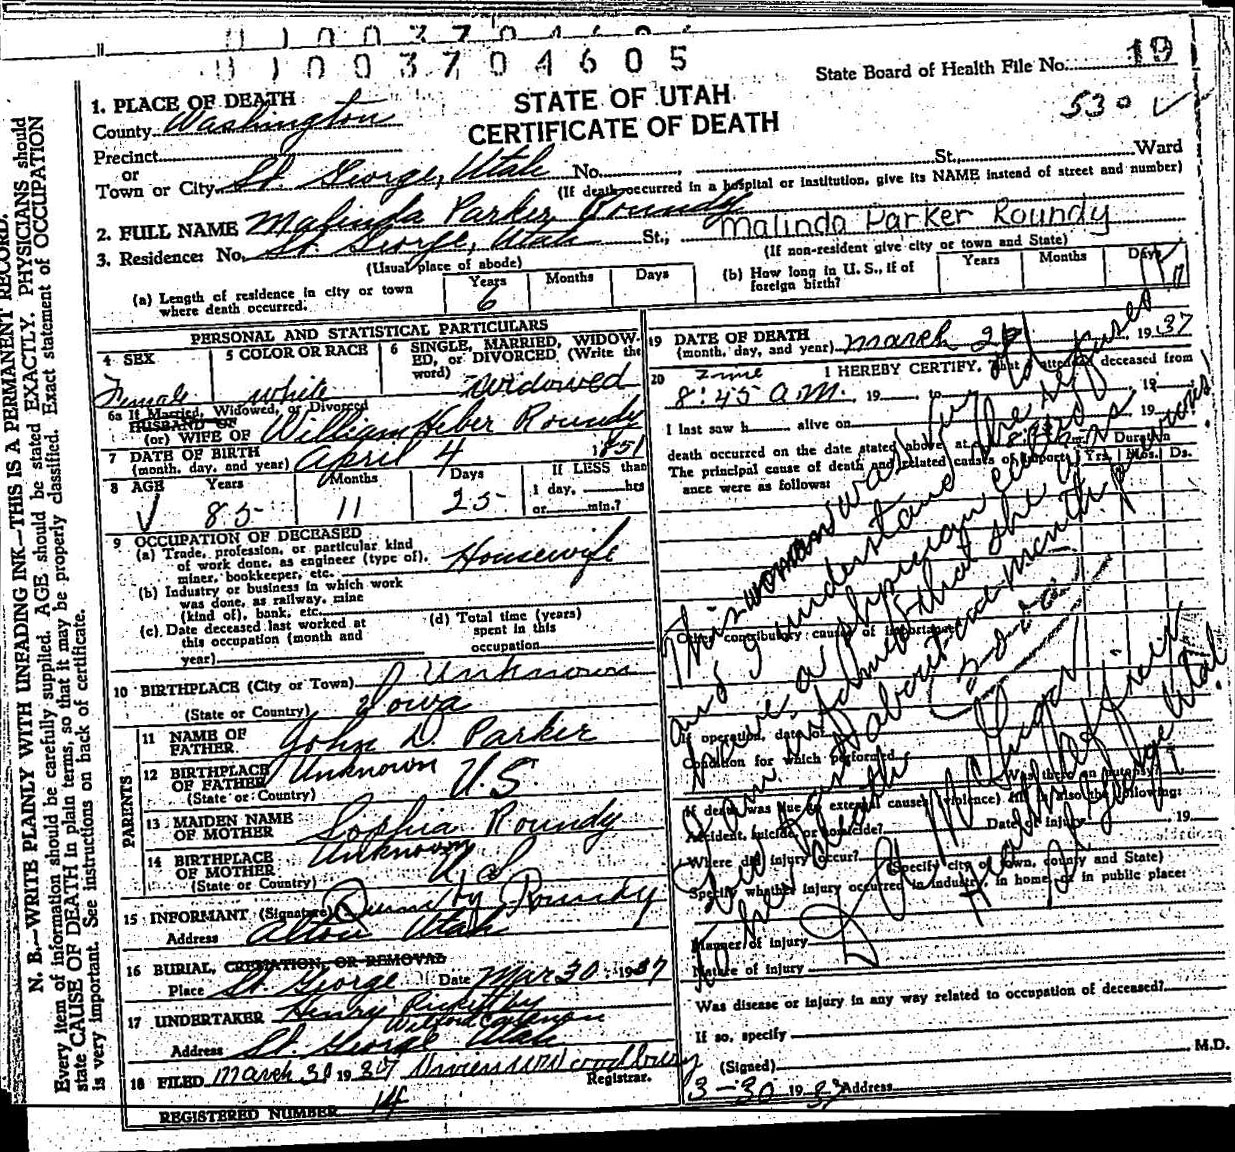 1003704605
State Board of Health File No. 19
530 ✓
STATE OF UTAH
CERTIFICATE OF DEATH
1. PLACE OF DEATH
County Washington
Precinct
or
Town or City St. George, Utah No. St., Ward
(If death occurred in a hospital or institution, give its NAME instead of street and number)
2. FULL NAME Malinda Parker Roundy
Malinda Parker Roundy
3. Residence: No. St. George, Utah St.,
(Usual place of abode)
(If non-resident give city or town and State)
(a) Length of residence in city or town where death occurred. Years 6 Months Days
(b) How long in U. S., if of foreign birth? Years Months Days
PERSONAL AND STATISTICAL PARTICULARS
4 SEX Female
5 COLOR OR RACE white
6 SINGLE, MARRIED, WIDOWED, or DIVORCED (Write the word) widowed
6a If Married, Widowed, or Divorced
HUSBAND OF
(or) WIFE OF William Heber Roundy
7 DATE OF BIRTH (month, day, and year) April 4 1851
8 AGE Years 85 Months 11 Days 25 If LESS than 1 day, hrs or min.?
9 OCCUPATION OF DECEASED
(a) Trade, profession, or particular kind of work done, as engineer (type of), miner, bookkeeper, etc. Housewife
(b) Industry or business in which work was done, as railway, mine (kind of), bank, etc.
(c) Date deceased last worked at this occupation (month and year)
(d) Total time (years) spent in this occupation
10 BIRTHPLACE (City or Town) Unknown
(State or Country) Iowa
PARENTS
11 NAME OF FATHER John D. Parker
12 BIRTHPLACE OF FATHER Unknown
(State or Country) U.S
13 MAIDEN NAME OF MOTHER Sophia Roundy
14 BIRTHPLACE OF MOTHER Unknown
(State or Country) U.S
15 INFORMANT (Signature) Quimby Roundy
Address Alton Utah
16 BURIAL, CREMATION, OR REMOVAL
Place St. George Date Mar 30 1937
17 UNDERTAKER Henry Pickett by
Address St. George Utah
18 FILED March 30 1937 Vivien W Woodbury
Registrar.
REGISTERED NUMBER 14
19 DATE OF DEATH (month, day, and year) March 29 1937
20 Time I HEREBY CERTIFY, That I attended deceased from
8:45 a.m. 19 to 19
I last saw h alive on 19
death occurred on the date stated above, at 8:45 a.m. Duration
The principal cause of death and related causes of importance were as follows: Yrs. Mos. Ds.
This woman was very old
and I understand she refused to
have a physician called
I am informed that she was
to her death
Other contributory causes of importance:
If operation, date of
Condition for which performed
Was there an autopsy?
If death was due to external causes (violence) fill in also the following:
Accident, suicide, or homicide? Date of injury 19
Where did injury occur?
(Specify city or town, county and State)
Specify whether injury occurred in industry, in home, or in public place:
Manner of injury
Nature of injury
Was disease or injury in any way related to occupation of deceased?
If so, specify
(Signed) M.D.
3-30 1937 Address
N. B.—WRITE PLAINLY WITH UNFADING INK—THIS IS A PERMANENT RECORD.
Every item of information should be carefully supplied. AGE should be stated EXACTLY. PHYSICIANS should
state CAUSE OF DEATH in plain terms, so that it may be properly classified. Exact statement of OCCUPATION
is very important. See instructions on back of certificate.